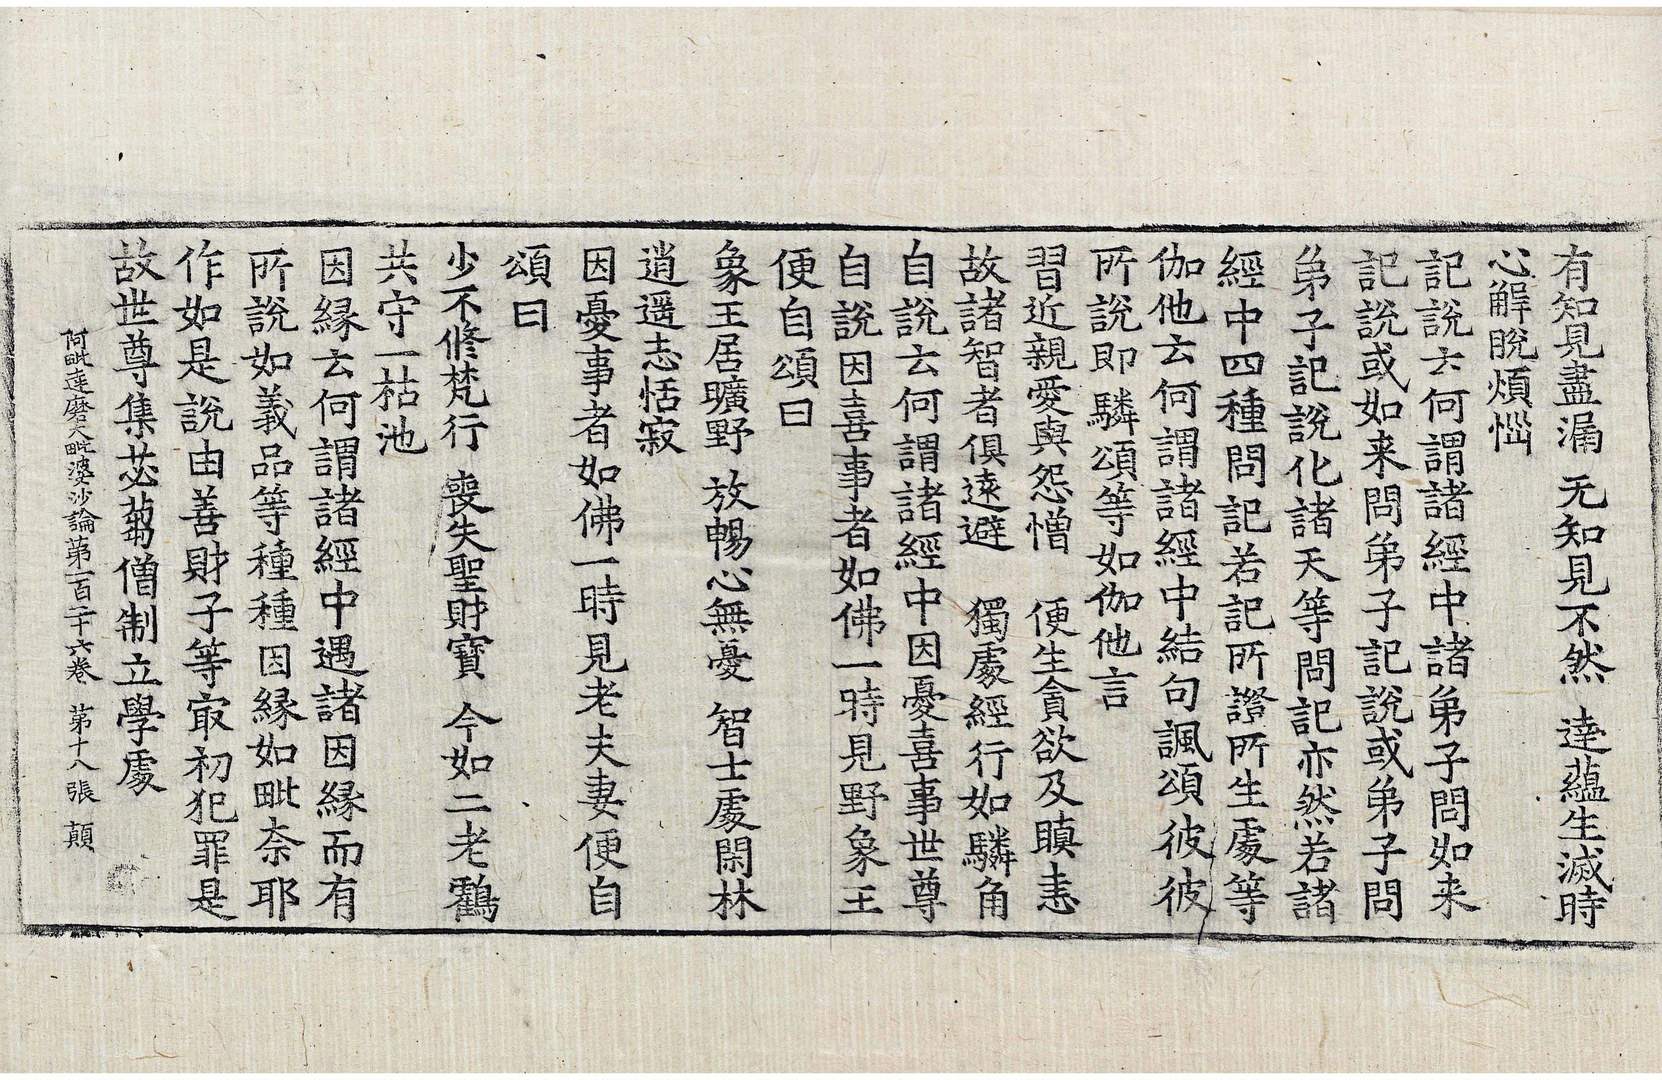 有知見盡漏　无知見不然　達蘊生滅時
心解脫煩惱
記說云何謂諸經中諸弟子問如来
記說或如来問弟子記說或弟子問
弟子記說化諸天等問記亦然若諸
經中四種問記若記所證所生處等
伽他云何謂諸經中結句諷頌彼彼
所說即麟頌等如伽他言
習近親愛與怨憎　便生貪欲及瞋恚
故諸智者俱遠避　獨處經行如麟角
自說云何謂諸經中因憂喜事世尊
自說因喜事者如佛一時見野象王
便自頌曰
象王居曠野　放暢心無憂　智士處閑林
逍遥志恬寂
因憂事者如佛一時見老夫妻便自
頌曰
少不修梵行　喪失聖財寶　今如二老鸛
共守一枯池
因縁云何謂諸經中遇諸因縁而有
所說如義品等種種因縁如毗奈耶
作如是說由善財子等冣初犯罪是
故世尊集苾蒭僧制立學處
阿毗達磨大毗婆沙論第一百二十六卷　第十八張　顛